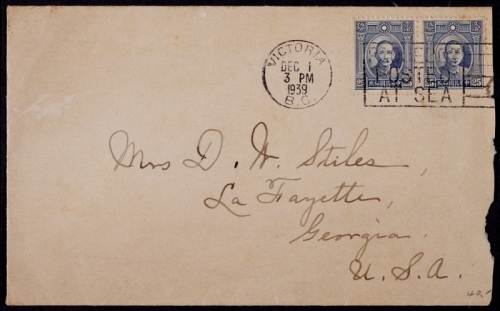 VICTORIA
DEC 1
3 PM
1939
B.C.
POSTED
AT SEA
25
Mrs D. W. Stiles,
La Fayette,
Georgia.
U.S.A.